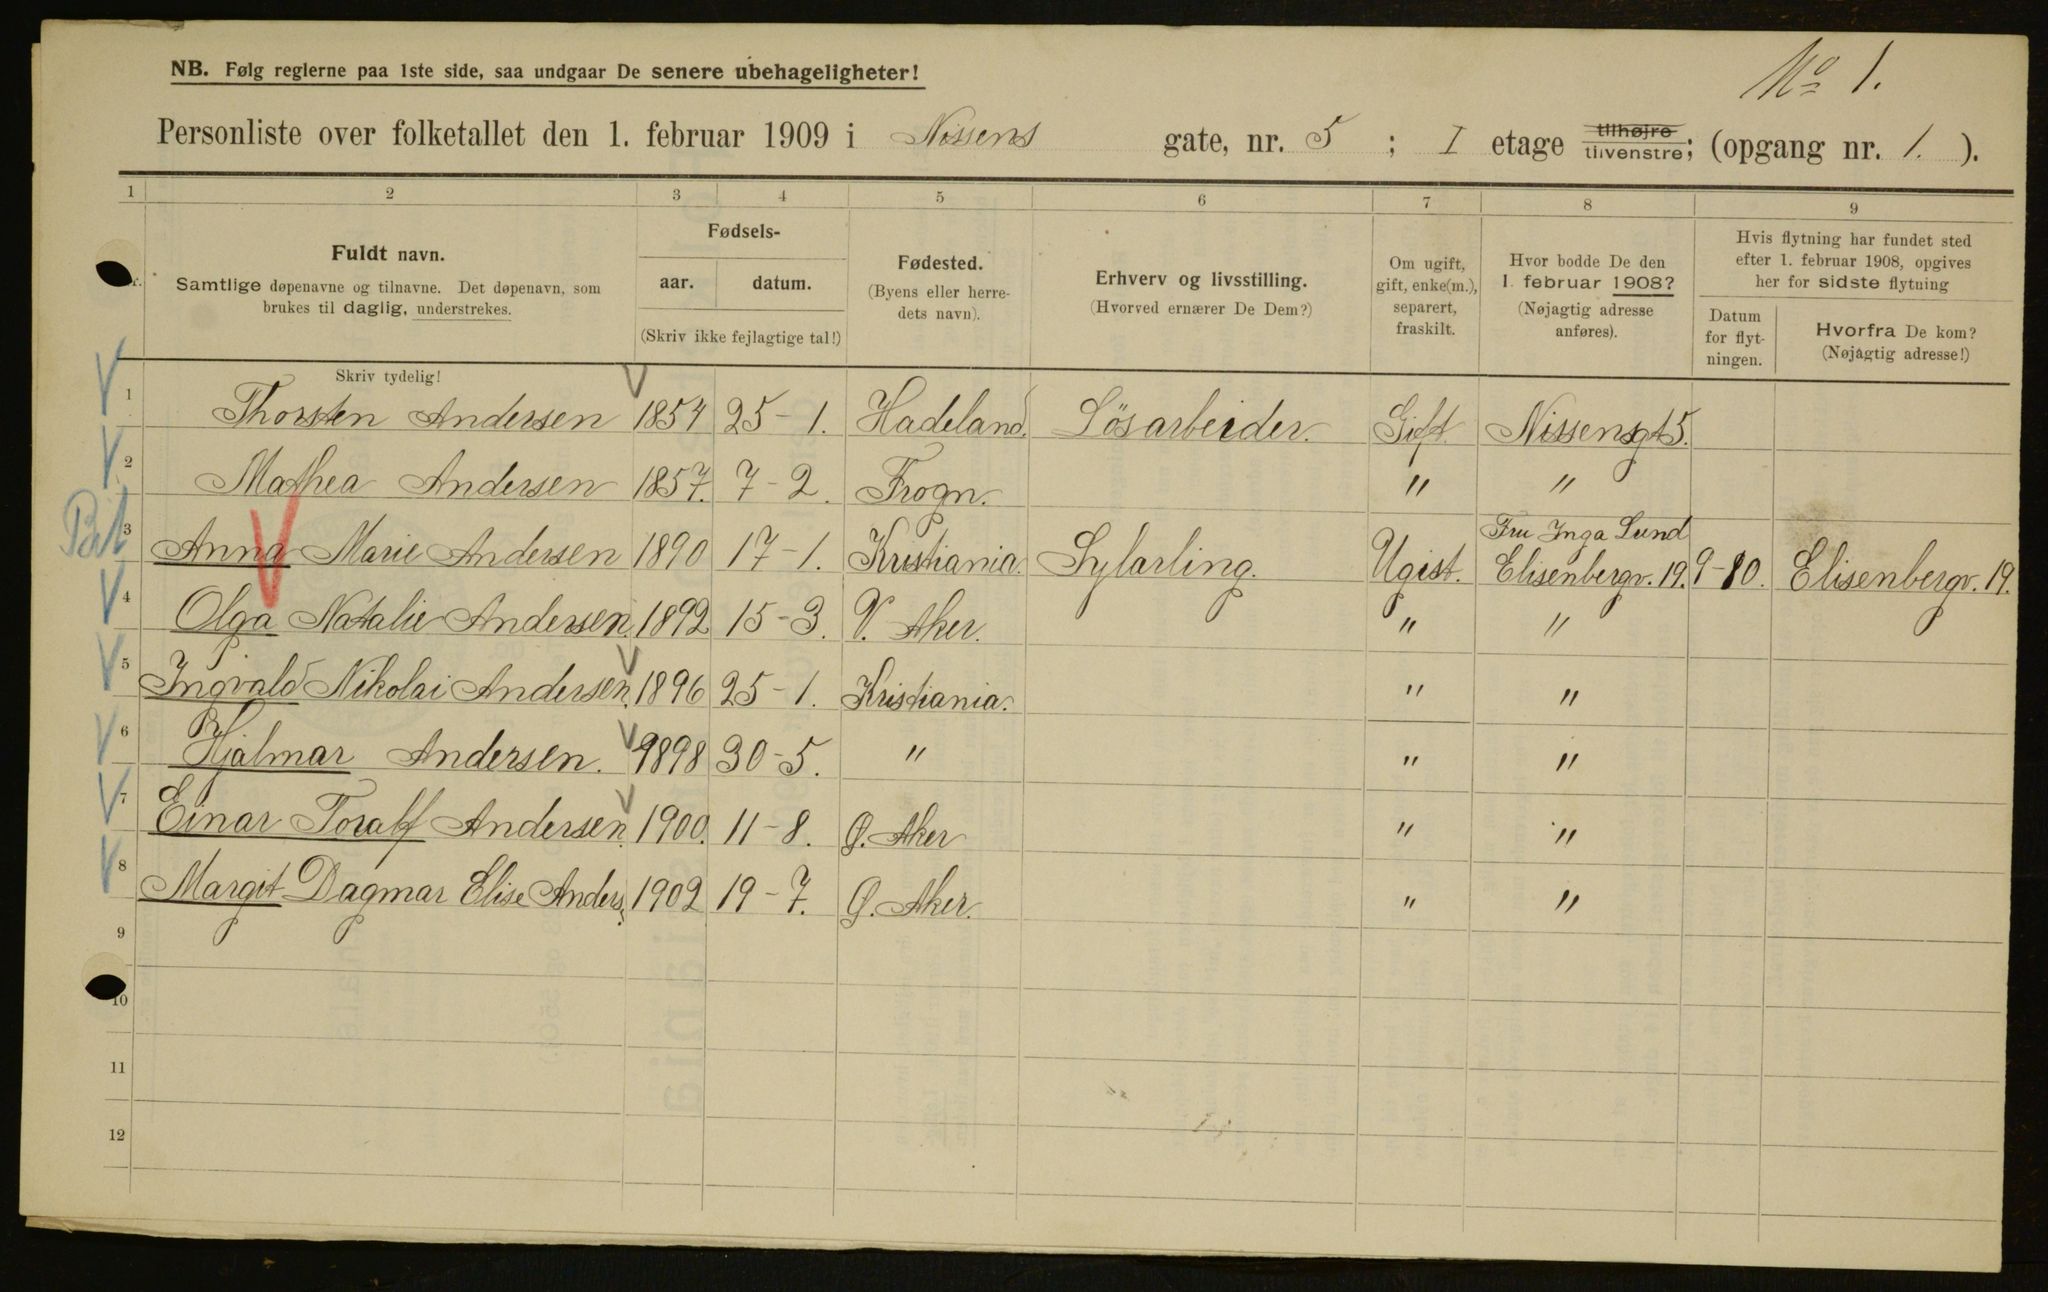 No 1.
NB. Følg reglerne paa 1ste side, saa undgaar De senere ubehageligheter!
Personliste over folketallet den 1. februar 1909 i Nissens gate, nr. 5 ; I etage tilhøjre tilvenstre; (opgang nr. 1. ).
1 2 3 4 5 6 7 8 9
Fuldt navn.
Samtlige døpenavne og tilnavne. Det døpenavn, som
brukes til daglig, understrekes.
Skriv tydelig!
Fødsels-
aar. datum.
(Skriv ikke fejlagtige tal!)
Fødested.
(Byens eller herre-
dets navn).
Erhverv og livsstilling.
(Hvorved ernærer De Dem?)
Om ugift,
gift, enke(m.),
separert,
fraskilt.
Hvor bodde De den
1. februar 1908?
(Nøjagtig adresse
anføres).
Hvis flytning har fundet sted
efter 1. februar 1908, opgives
her for sidste flytning
Datum
for flyt-
ningen.
Hvorfra De kom?
(Nøjagtig adresse!)
1 Thorsten Andersen 1854 25-1. Hadeland. Løsarbeider. Gift. Nissensgt 5.
2 Mathea Andersen 1857. 7-2. Frogn. " "
Fru Inga Lund
3 Anna Marie Andersen 1890 17-1. Kristiania. Sylærling. Ugift. Elisenbergv. 19. 9-10. Elisenbergv. 19.
4 Olga Natalie Andersen. 1892 15-3. V. Aker. " "
5 Ingvald Nikolai Andersen. 1896 25-1. Kristiania. " "
6 Hjalmar Andersen. 1898 30-5. " " "
7 Einar Toralf Andersen. 1900. 11-8. Ø. Aker " "
8 Margit Dagmar Elise Anders. 1902 19-7. Ø. Aker. " "
9
10
11
12